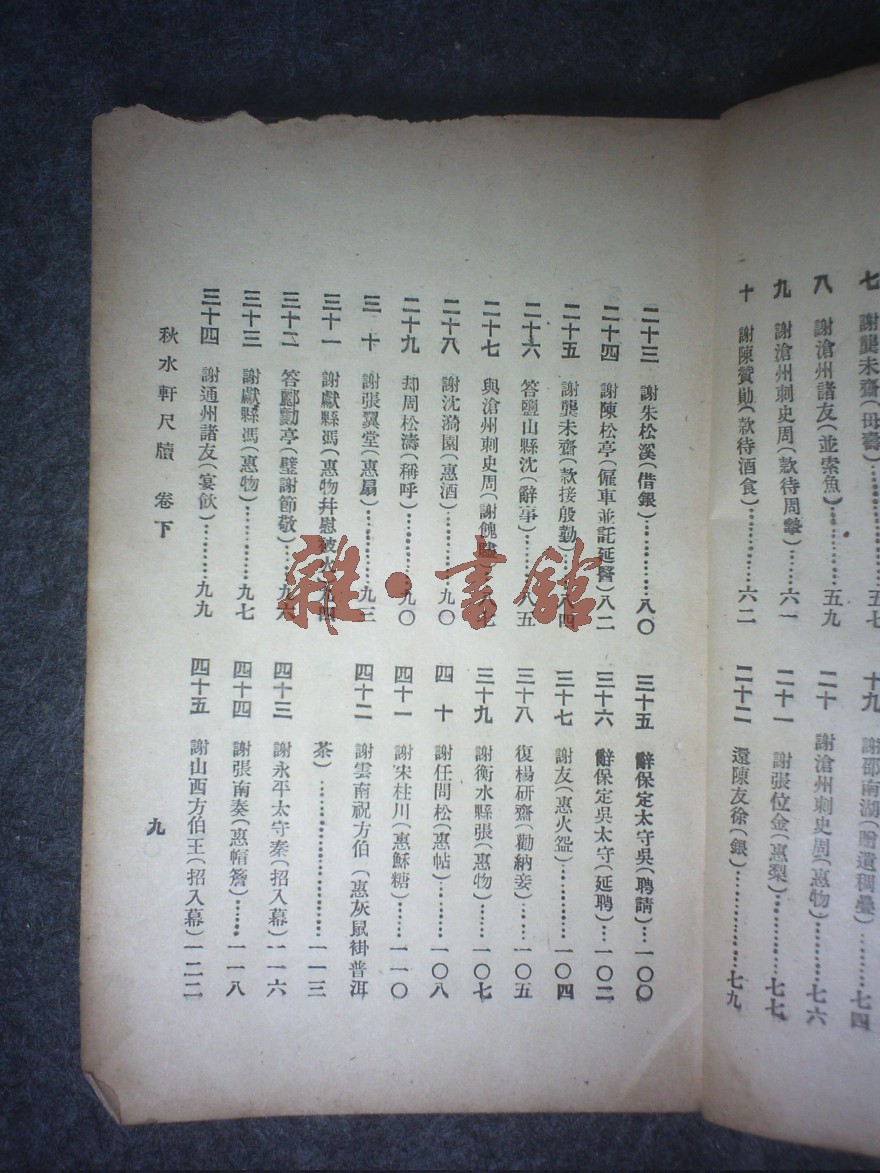 七 謝龔未齋(母壽)………五七
八 謝滄州諸友(並索魚)………五九
九 謝滄州刺史周(款待周摯)……六一
十 謝陳贊勛(款待酒食)………六二
十九 謝邵南湖(贈遺稠疊)……七四
二十 謝滄州刺史周(惠物)………七六
二十一 謝張位金(惠梨)………七七
二十二 還陳友徐(銀)………七九
二十三 謝朱松溪(借銀)………八〇
二十四 謝陳松亭(僱車並託延醫)八二
二十五 謝龔未齋(款接殷勤)……八四
二十六 答鹽山縣沈(辭事)……八五
二十七 與滄州刺史周(謝餽
二十八 謝沈漪園(惠酒)………九〇
二十九 却周松濤(稱呼)………九〇
三十 謝張翼堂(惠扇)………九三
三十一 謝獻縣馮(惠物幷慰被火
三十二 答酈勳亭(璧謝節敬)……九六
三十三 謝獻縣馮(惠物)………九七
三十四 謝通州諸友(宴飲)………九九
三十五 辭保定太守吳(聘請)…一〇〇
三十六 辭保定吳太守(延聘)…一〇二
三十七 謝友(惠火盌)………一〇四
三十八 復楊研齋(勸納妾)……一〇五
三十九 謝衡水縣張(惠物)……一〇七
四十 謝任問松(惠帖)………一〇八
四十一 謝宋桂川(惠酥糖)……一一〇
四十二 謝雲南祝方伯(惠灰鼠褂普洱
茶)………一一三
四十三 謝永平太守秦(招入幕)一一六
四十四 謝張南奏(惠帽簷)……一一八
四十五 謝山西方伯王(招入幕)一二二
秋水軒尺牘 卷下
九
雜·書館